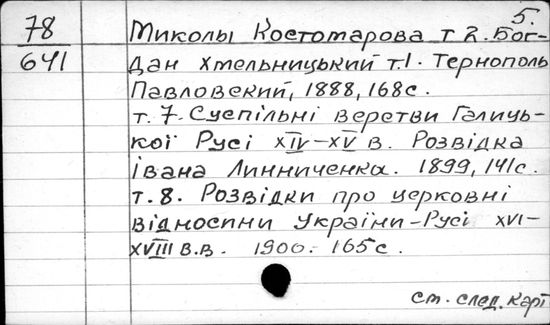 5.
78
641
Миколы Костомарова т 2. Бог-
дан Хмельницький т.1. Тернополь
Павловский, 1888, 168с.
т. 7. Суспільні верстви Галиць-
кої Русі XIV-XV в. Розвідка
івана Линниченка. 1899, 141с.
т. 8. Розвідки про церковні
відносини України-Русі XVI-
XVIII в.в. 1900.- 165с.
см. след. карт